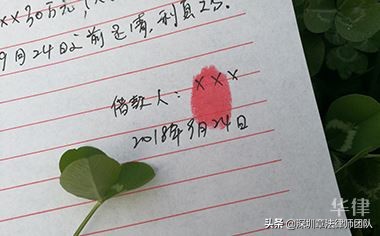 ××30万元,
9月24日之前还清,利息2分.
借款人: ×××
2018年9月24日
华律
头条@深圳章法律师团队